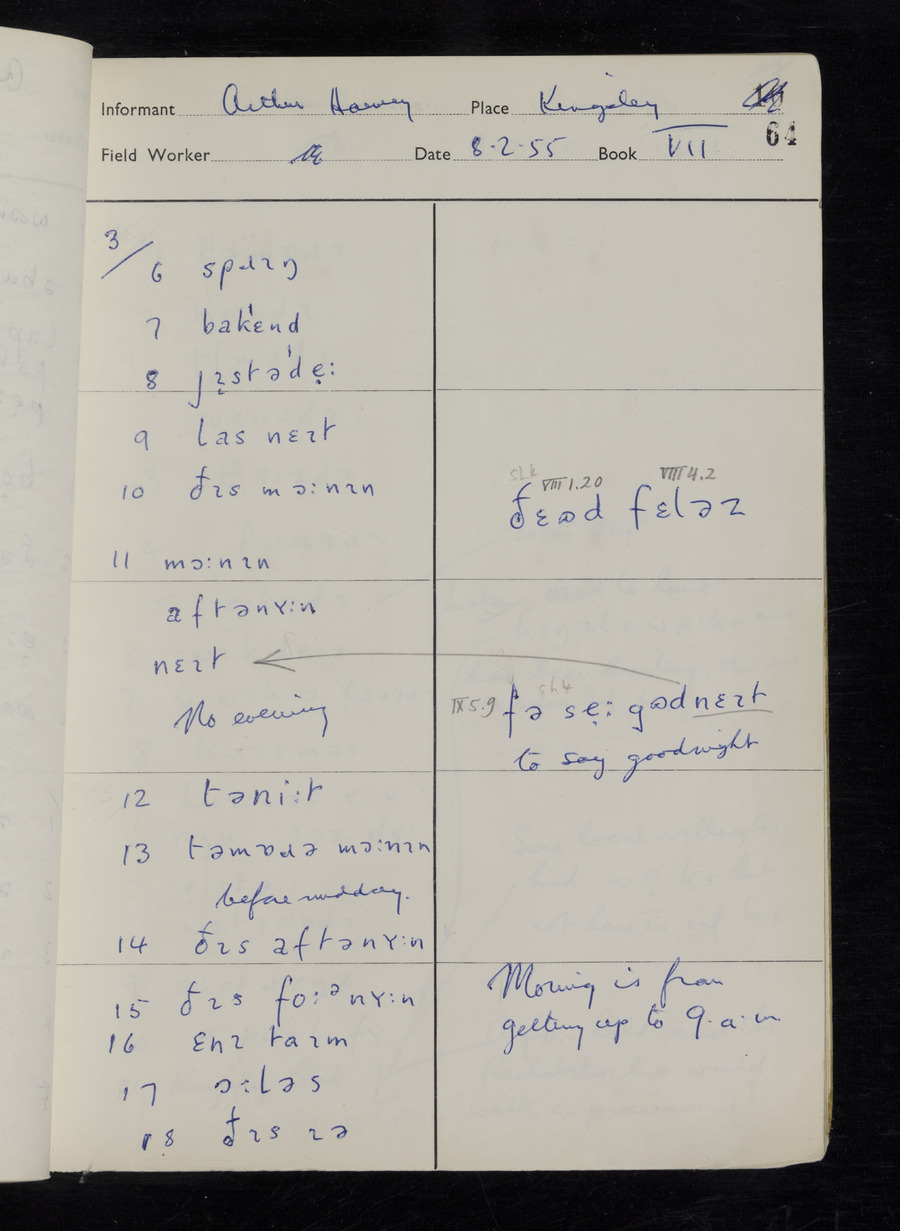 Informant Arthur Harvey Place Kingsley
64
Field Worker Date 8·2·55 Book VII
3/
6 spɹɪŋ
7 bakˈɛnd
8 jɪ̣stəˈdẹː
9 las nɛɪt
10 ðɪs mɔːnɪn
VIII 1.20 VIII 4.2
ðɛɷd fɛləz
11 mɔːnɪn
aftənʏːn
nɛɪt
No evening
IX 5.9 fə sẹː gɷdnɛɪt
to say goodnight
12 təniːt
13 təmɒɹə mɔːnɪn
before midday.
14 ðɪs aftənʏːn
15 ðɪs foːᵊnʏːn
16 ɛnɪ taɪm
17 ɔːləs
18 ðɪs ɪə
Morning is from
getting up to 9·a·m.